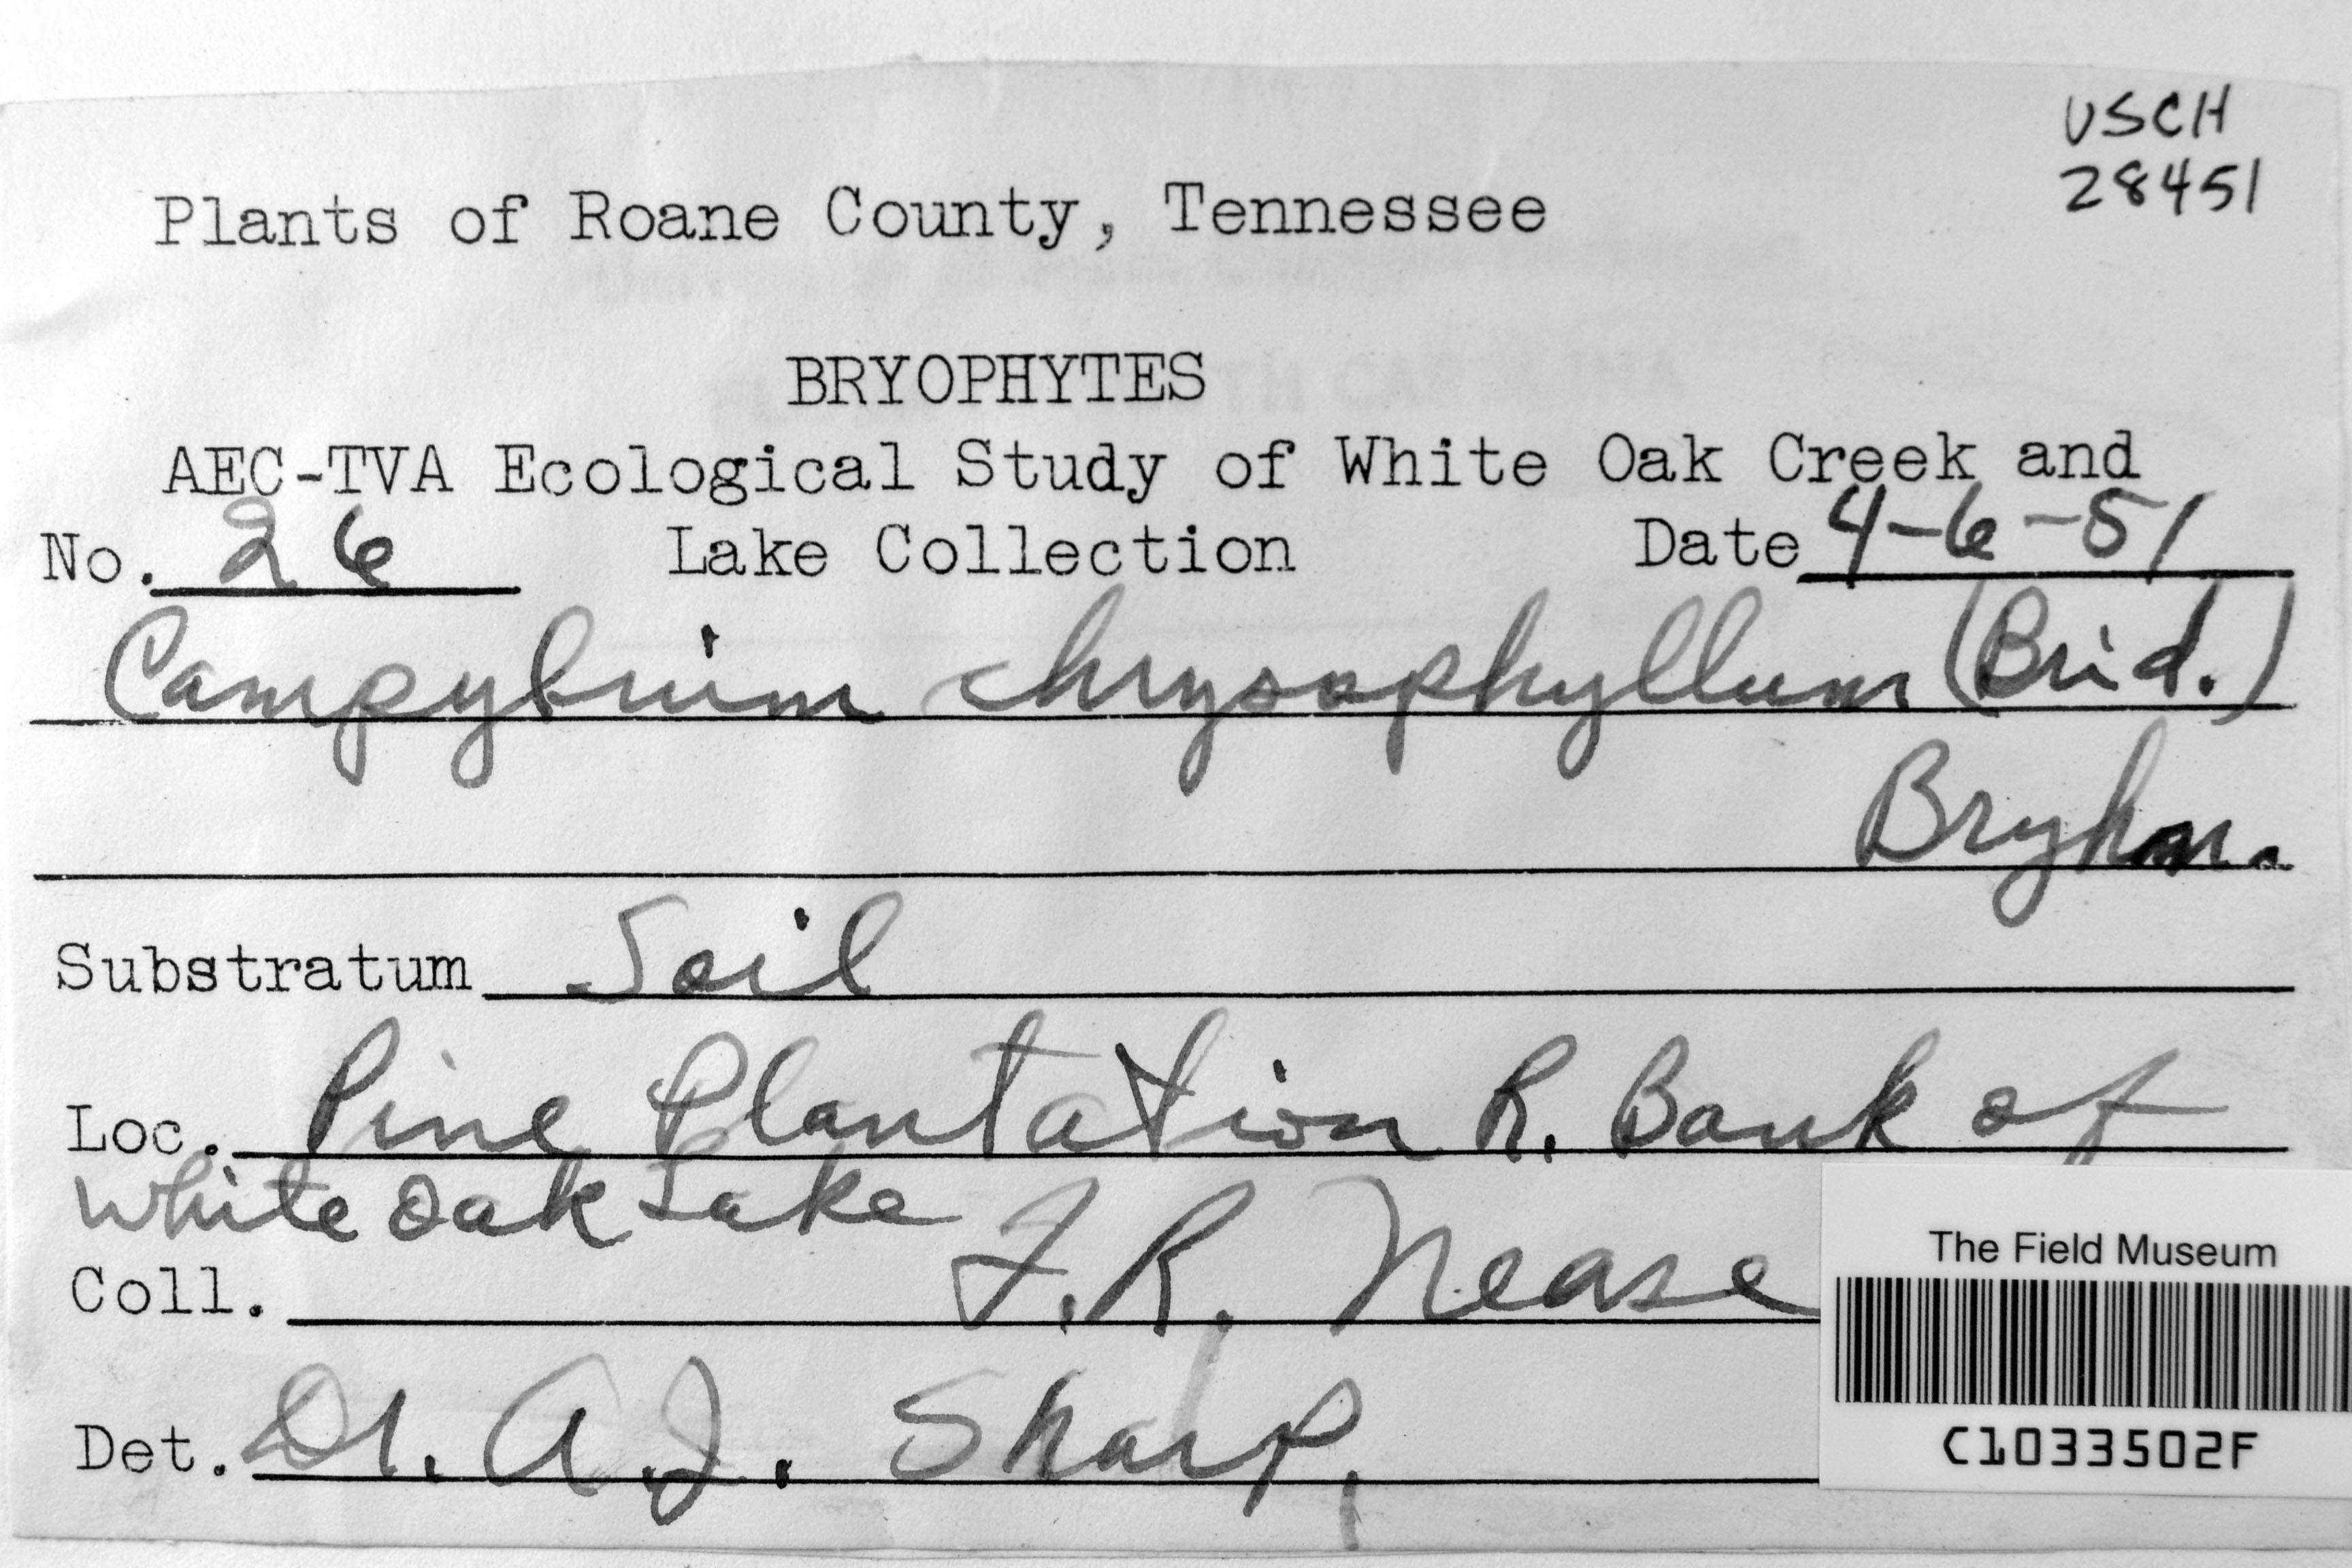 USCH
28451
Plants of Roane County, Tennessee
BRYOPHYTES
AEC-TVA Ecological Study of White Oak Creek and
No. 26 Lake Collection Date 4-6-51
Campylium chrysophyllum (Brid.)
Bryhn.
Substratum Soil
Loc. Pine Plantation R. Bank of
White Oak Lake
Coll. F.R. Nease
Det. Dr. A.J. Sharp,
The Field Museum
C1033502F